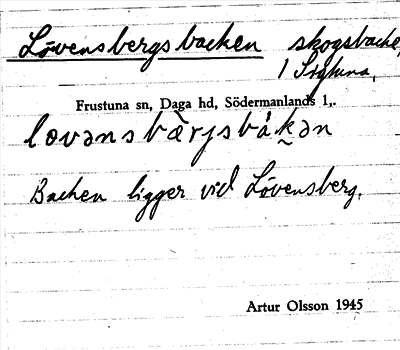 Lövensbergsbacken skogsbacke,
i Sigtuna,
Frustuna sn, Daga hd, Södermanlands l,.
lovənsbærjsbákən
Backen ligger vid Lövensberg.
Artur Olsson 1945